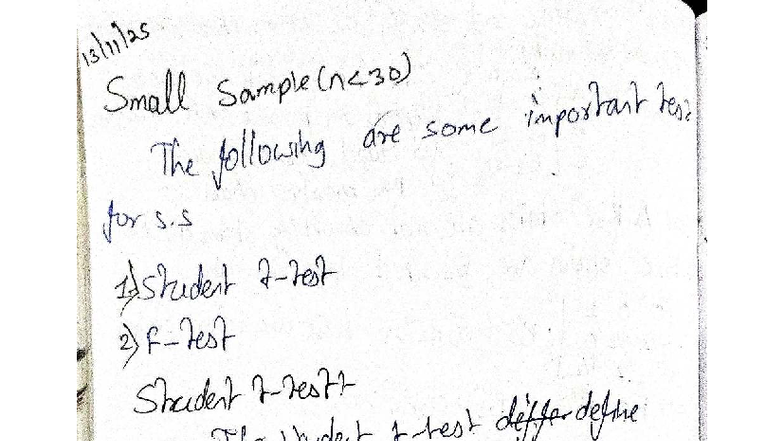 13/11/25
Small Sample (n<30)
The following are some important test
for s.s
1) Student t-test
2) F-test
Student t-test
The student t-test differ define